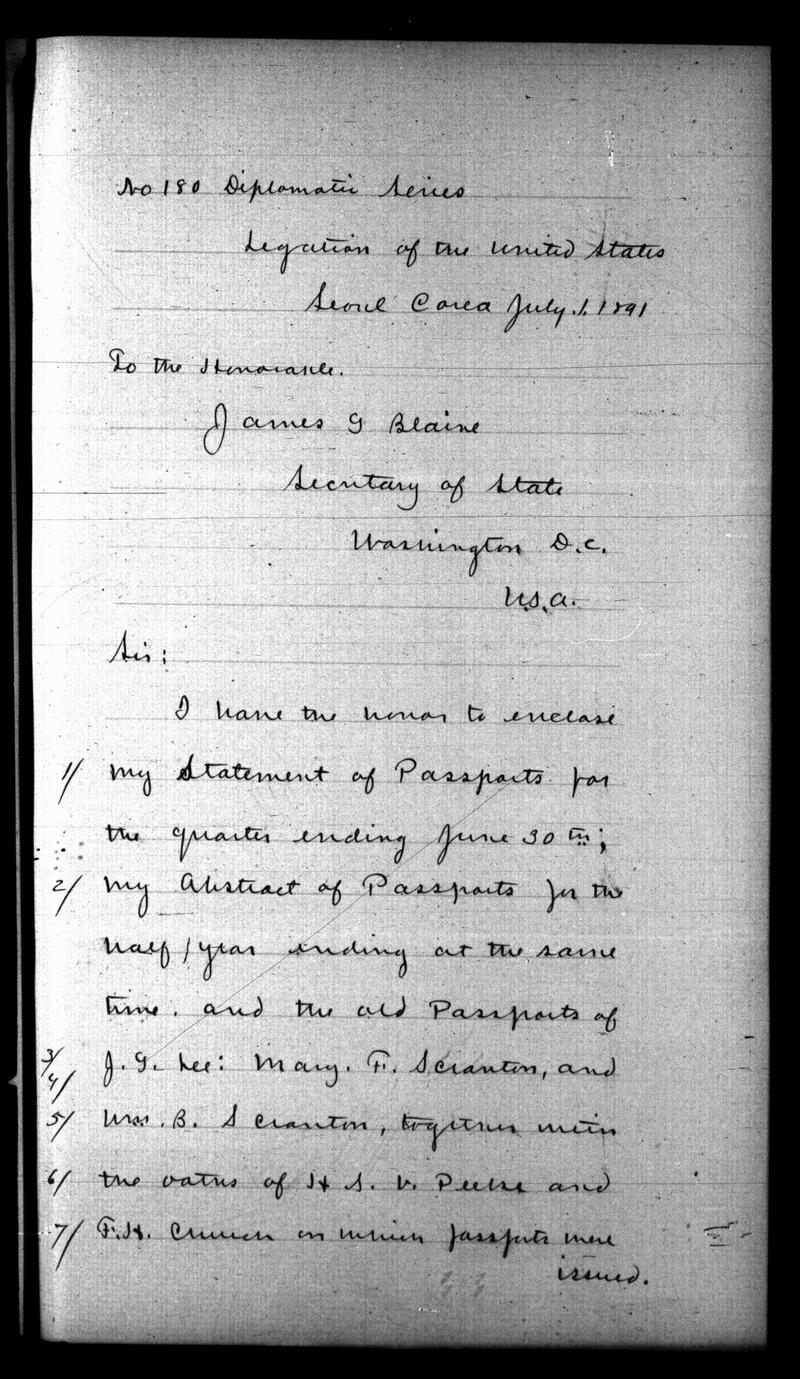 No 180 Diplomatic Series
Legation of the United States
Seoul Corea July. 1. 1891
To the Honorable.
James G Blaine
Secretary of State
Washington D.C.
U.S.A.
Sir:
I have the honor to enclose
1/ my Statement of Passports for
the quarter ending June 30th;
2/ my Abstract of Passports for the
half/year ending at the same
time. and the old Passports of
3/ 4/ J. G. Lee: Mary. F. Scranton, and
5/ Wm. B. Scranton, together with
6/ the oaths of H. S. V. Peeke and
7/ F.H. on which passports were
issued.